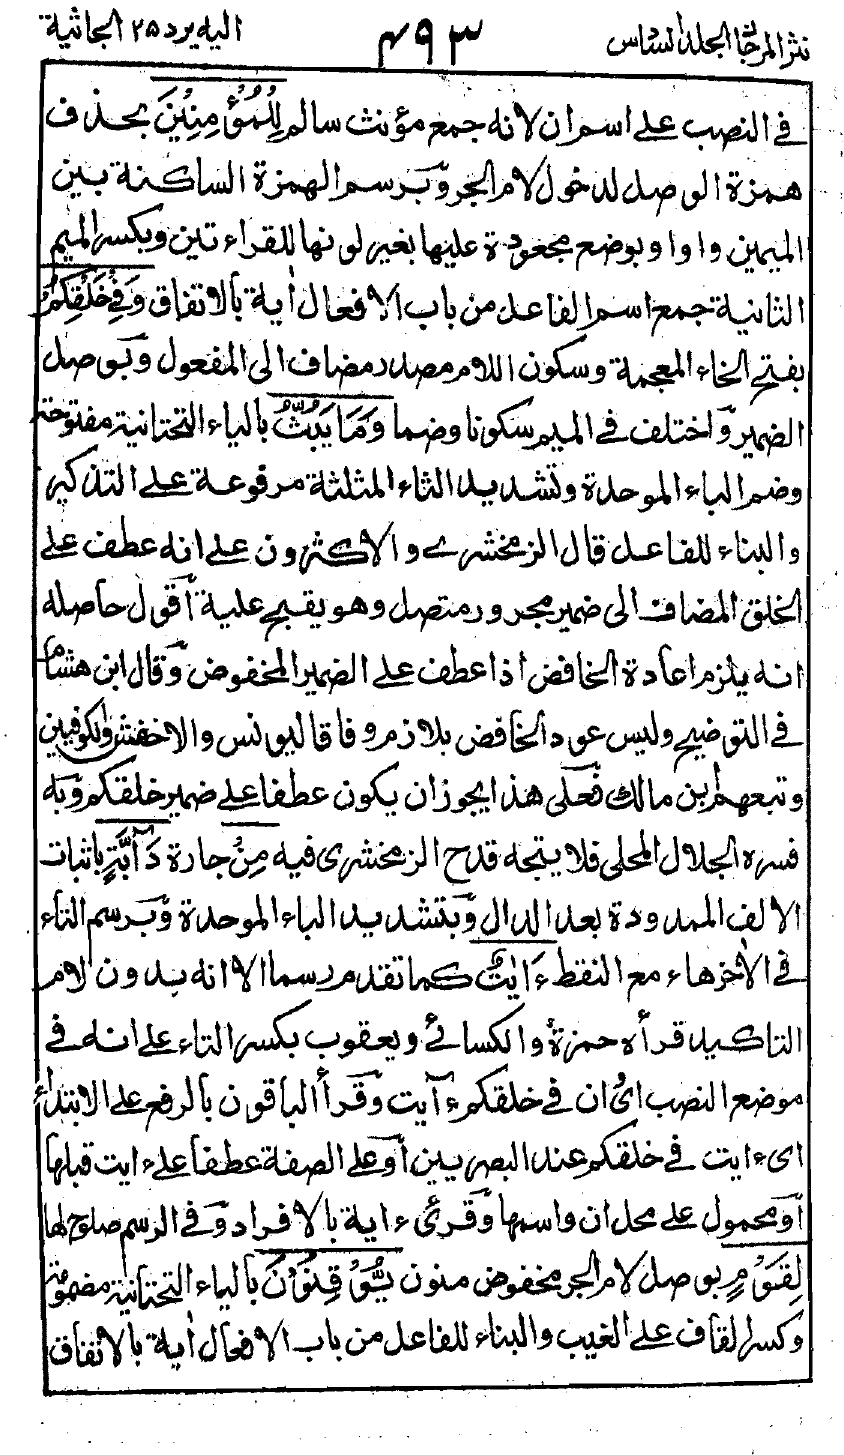 نثر المرجان الجلد السادس
٤٩٣
اليه يرد ٢٥ الجاثية
في النصب على اسم ان لانه جمع مؤنث سالم لِلْمُؤْمِنِيْنَ بحذف
همزة الوصل لدخول لام الجر وبرسم الهمزة الساكنة بين
الميمين واوا وبوضع مجعودة عليها بغير لونها للقراءتين وبكسر الميم
الثانية جمع اسم الفاعل من باب الافعال اٰية بالاتفاق وَفِيْ خَلْقِكُمْ
بفتح الخاء المعجمة وسكون اللام مصدر مضاف الى المفعول وبوصل
الضمير واختلف في الميم سكونا وضما وَمَا يَبُثُّ بالياء التحتانية مفتوحة
وضم الباء الموحدة وتشديد الثاء المثلثة مرفوعة على التذكير
والبناء للفاعل قال الزمخشري والاكثرون على انه عطف على
الخلق المضاف الى ضمير مجرور متصل وهو يقبح عليه أقول حاصله
انه يلزم اعادة الخافض اذا عطف على الضمير المخفوض وقال ابن هشام
في التوضيح وليس عود الخافض بلازم وفاقا ليونس والاخفش والكوفيين
وتبعهم ابن مالك فعلى هذا يجوز ان يكون عطفا على ضمير خلقكم وبه
فسره الجلال المحلى فلا يتجه قدح الزمخشرى فيه مِنْ جارة دَآبَّةٍ باثبات
الالف الممدودة بعد الدال وبتشديد الباء الموحدة وبرسم التاء
في الاٰخر هاء مع النقط ءَايٰتٌ كما تقدم رسما الا انه بدون لام
التاكيد قرأه حمزة والكسائي ويعقوب بكسر التاء على انه في
موضع النصب اى ان في خلقكم ءآيت وقرأ الباقون بالرفع على الابتداء
اى ءايت في خلقكم عند البصريين أو على الصفة عطفا على ءايت قبلها
أو محمول على محل ان واسمها وقرئ ءاية بالافراد وفي الرسم صلوح لها
لِقَوْمٍ بوصل لام الجر مخفوض منون يُّوْقِنُوْنَ بالياء التحتانية مضمومة
وكسر القاف على الغيب والبناء للفاعل من باب الافعال اٰية بالاتفاق